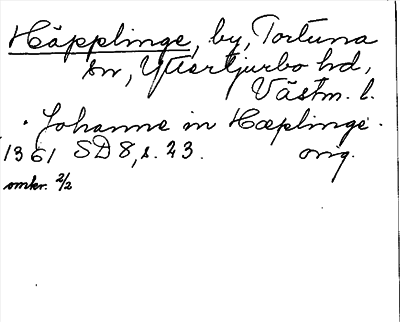 Häpplinge, by, Tortuna
sn, Yttertjurbo hd,
Västm. l.
Johanne in Hæplinge.
1361 SD 8, s. 23. orig.
omkr. 2/2